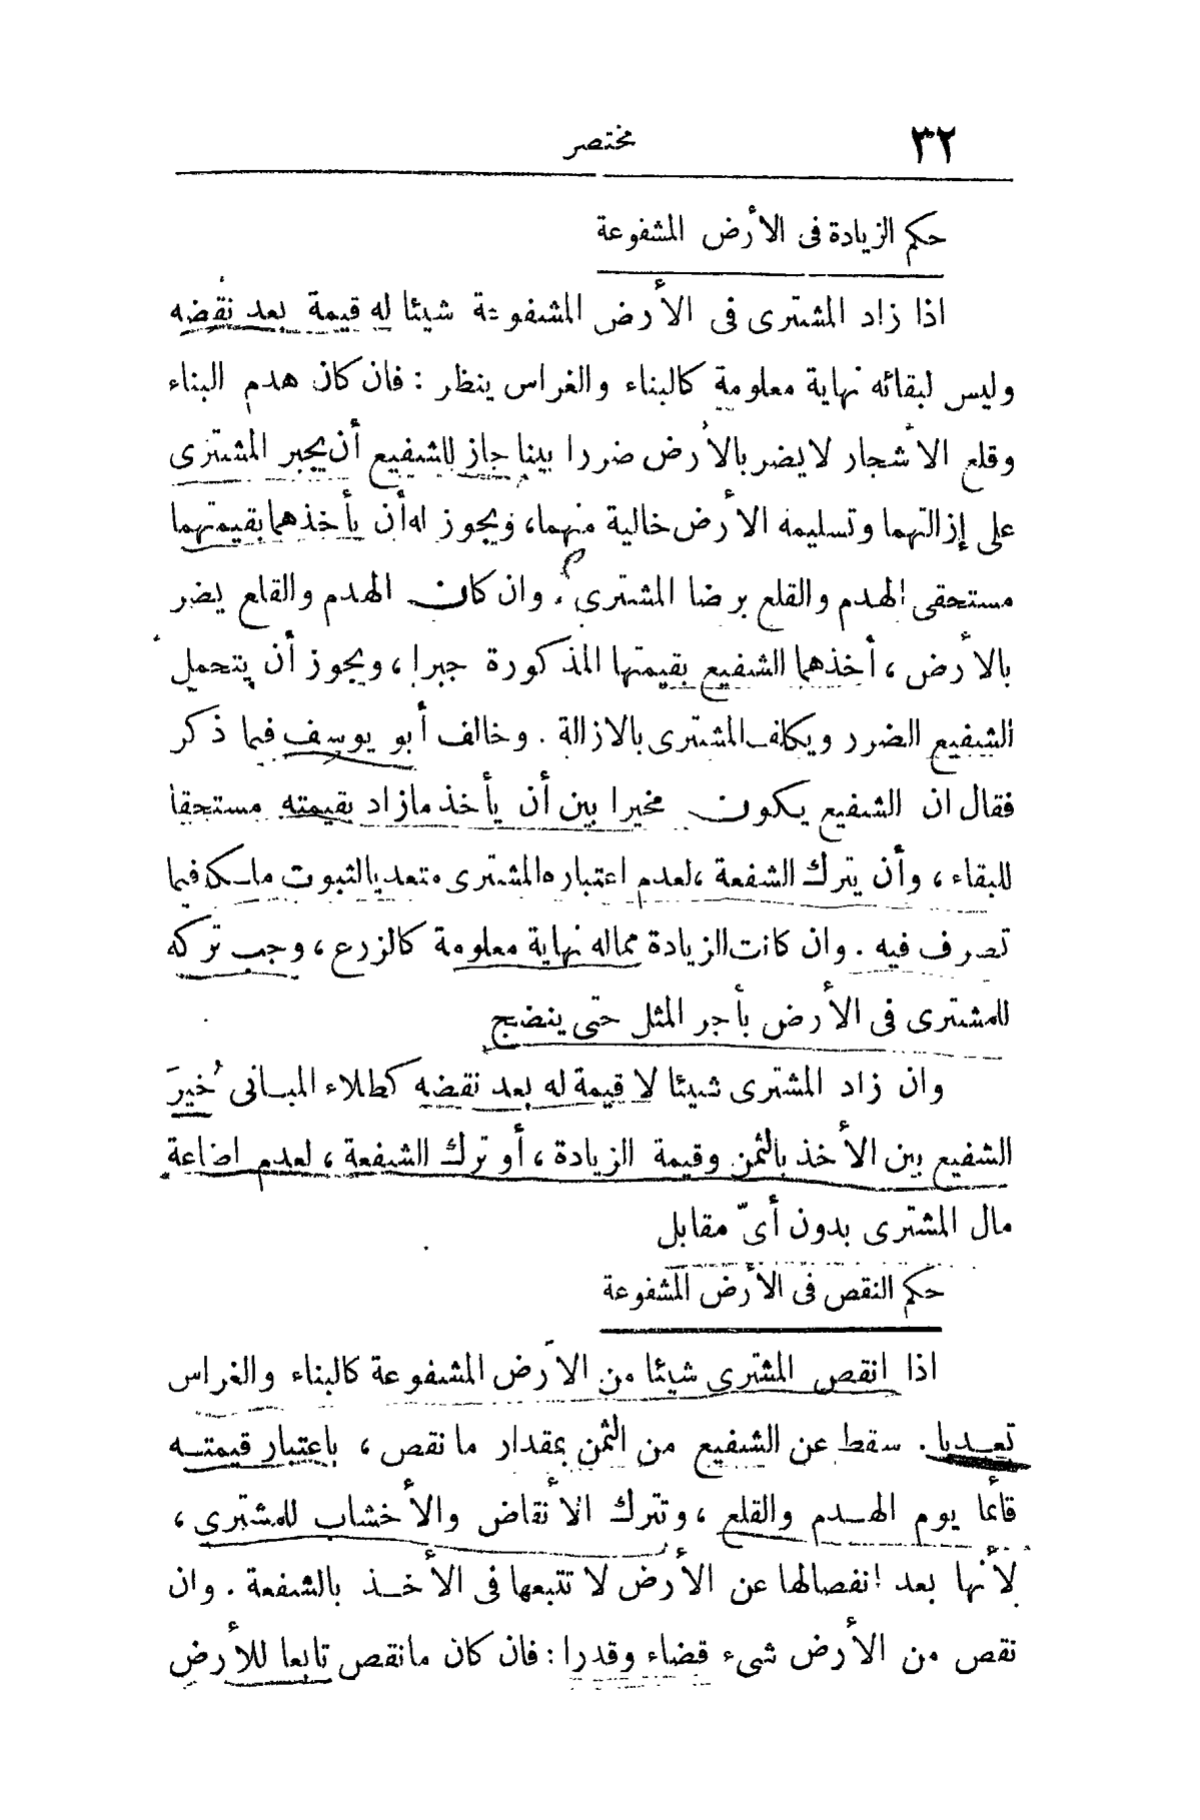 ٣٢
مختصر
حكم الزيادة فى الأرض المشفوعة
اذا زاد المشترى فى الأرض المشفوعة شيئا له قيمة بعد نقضه
وليس لبقائه نهاية معلومة كالبناء والغراس ينظر : فان كان هدم البناء
وقلع الأشجار لا يضر بالأرض ضررا بينا جاز للشفيع أن يجبر المشترى
على إزالتهما وتسليمه الأرض خالية منهما، ويجوز له أن يأخذهما بقيمتهما
مستحقى الهدم والقلع برضا المشترى. وان كان الهدم والقلع يضر
بالأرض ، أخذهما الشفيع بقيمتها المذكورة جبرا ، ويجوز أن يتحمل
الشفيع الضرر ويكلف المشترى بالازالة . وخالف أبو يوسف فيما ذكر
فقال ان الشفيع يكون مخيرا بين أن يأخذ مازاد بقيمته مستحقا
للبقاء ، وأن يترك الشفعة ،لعدم اعتباره المشترى متعديا لثبوت ملكه فيما
تصرف فيه . وان كانت الزيادة مماله نهاية معلومة كالزرع ، وجب تركه
للمشترى فى الأرض بأجر المثل حتى ينضج
وان زاد المشترى شيئا لا قيمة له بعد نقضه كطلاء المبانى خُيرَ
الشفيع بين الأخذ بالثمن وقيمة الزيادة ، أو ترك الشفعة ، لعدم اضاعة
مال المشترى بدون أىّ مقابل
حكم النقص فى الأرض المشفوعة
اذا انقص المشترى شيئا من الأرض المشفوعة كالبناء والغراس
تعديا . سقط عن الشفيع من الثمن بمقدار ما نقص ، باعتبار قيمته
قائما يوم الهدم والقلع ، وتترك الأنقاض والأخشاب للمشترى ،
لأنها بعد انفصالها عن الأرض لا تتبعها فى الأخذ بالشفعة . وان
نقص من الأرض شىء قضاء وقدرا : فان كان مانقص تابعا للأرض